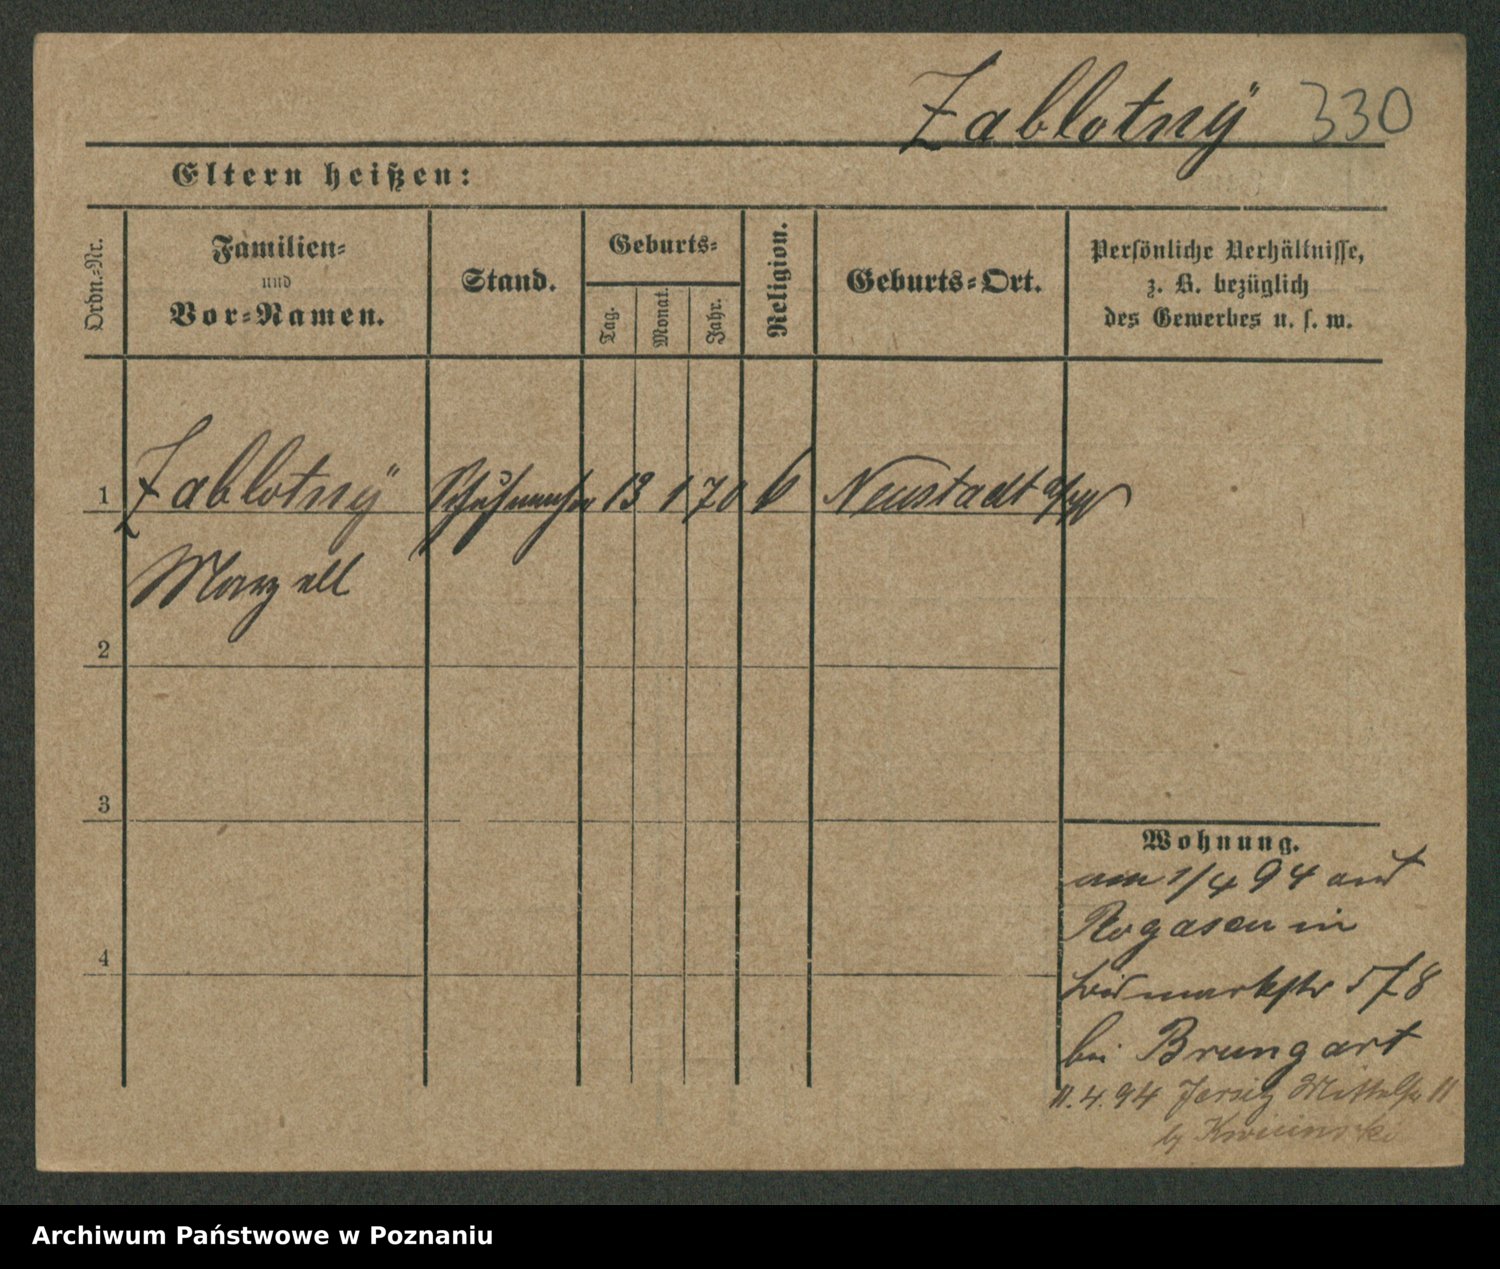 Zablotnÿ 330
Eltern heißen:
Ordn.-Nr.
Familien-
und
Vor-Namen.
Stand.
Geburts-
Tag.
Monat.
Jahr.
Religion.
Geburts-Ort.
Persönliche Verhältnisse,
z. B. bezüglich
des Gewerbes u. s. w.
1 Zablotnÿ Schuhmacher 13 1 70 Neustadt a/W
Marzell
2
3
4
Wohnung.
am 1/4 94 aus
Rogasen in
Bismarkstr 5
bei Brungart
11.4.94 Jersitz Mittelstr 11